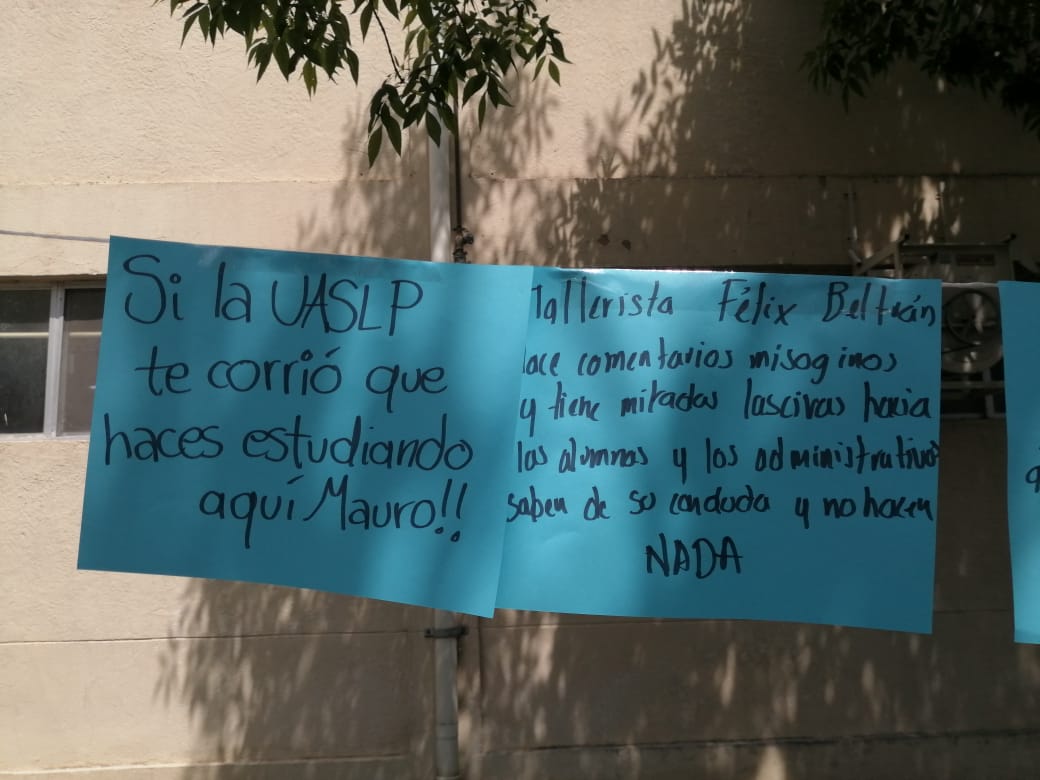 Si la UASLP
te corrió que
haces estudiando
aquí Mauro!!
Tallerista Félix Beltrán
ace comentarios misoginos
y tiene miradas lascivas hacia
las alumnas y los administrativos
saben de su conducta y no hacen
NADA